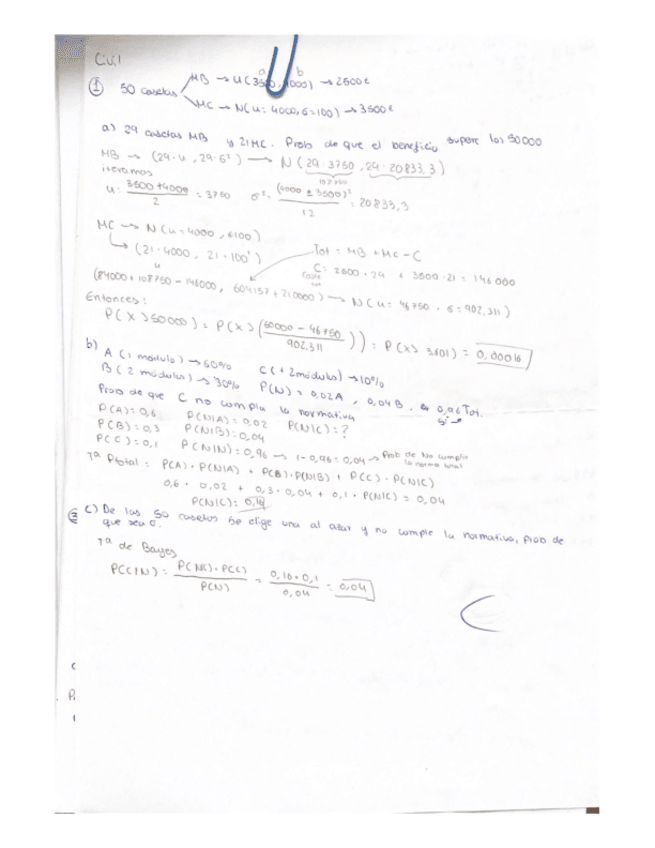 Civil
a b
① 50 casetas MB → U(3500, 4000) → 2500€
MC → N(u: 4000, 6=100) → 3500€
a) 29 casetas MB y 21 MC. Prob de que el beneficio supere los 50000
MB → (29·u, 29·6²) → N(29·3750, 29·20833,3)
108750
u: 3500+4000 / 2 = 3750 6²: / 12 = 20833,3
MC → N(u=4000, 6100)
→ (21·4000, 21·100²)
u
Tot = MB + MC - C
C: 2500·29 + 3500·21 = 146000
(84000 + 108750 - 146000, + 210000) → N(u: 46750, 6=902,311)
Entonces:
P(X>50000) = P(X>(50000 - 46750 / 902,311)) = P(X> 3,601) = 0,00016
b) A (1 modulo) → 60%
B (2 modulos) → 30%
C (+2 modulos) → 10%
P(N) = 0,02A, 0,04B, 0,96 Tot.
Prob de que C no cumpla la normativa
P(A)=0,6 P(N|A) = 0,02 P(N|C) = ?
P(B)=0,3 P(N|B)=0,04
P(C)=0,1 0,96 → 1-0,96=0,04 → Prob de No cumplir
la norma total
Tª Ptotal = P(A)·P(N|A) + P(B)·P(N|B) + P(C)·P(N|C)
0,6 · 0,02 + 0,3·0,04 + 0,1·P(N|C) = 0,04
P(N|C):
c) De las 50 casetas se elige una al azar y no cumple la normativa, prob de
que sea C.
Tª de Bayes
P(C|N) = P(N|C)·P(C) / P(N) = / 0,04 =